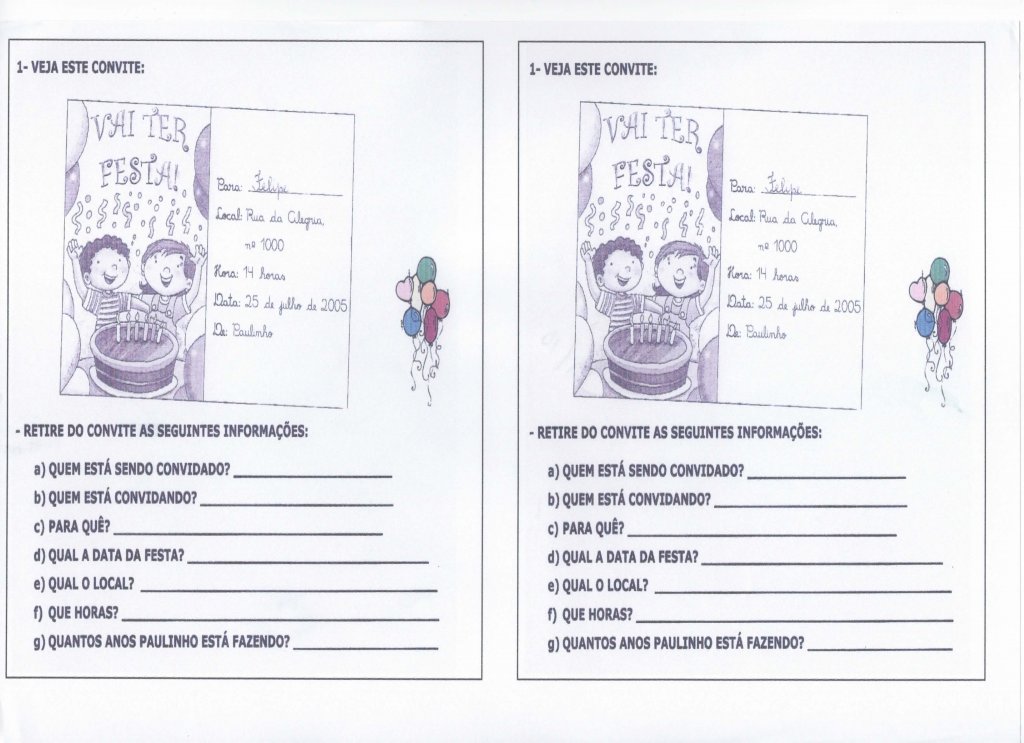 1- VEJA ESTE CONVITE:
VAI TER
FESTA!
Para: Felipe
Local: Rua da Alegria,
nº 1000
Hora: 14 horas
Data: 25 de julho de 2005
De: Paulinho
- RETIRE DO CONVITE AS SEGUINTES INFORMAÇÕES:
a) QUEM ESTÁ SENDO CONVIDADO?
b) QUEM ESTÁ CONVIDANDO?
c) PARA QUÊ?
d) QUAL A DATA DA FESTA?
e) QUAL O LOCAL?
f) QUE HORAS?
g) QUANTOS ANOS PAULINHO ESTÁ FAZENDO?
1- VEJA ESTE CONVITE:
VAI TER
FESTA!
Para: Felipe
Local: Rua da Alegria,
nº 1000
Hora: 14 horas
Data: 25 de julho de 2005
De: Paulinho
- RETIRE DO CONVITE AS SEGUINTES INFORMAÇÕES:
a) QUEM ESTÁ SENDO CONVIDADO?
b) QUEM ESTÁ CONVIDANDO?
c) PARA QUÊ?
d) QUAL A DATA DA FESTA?
e) QUAL O LOCAL?
f) QUE HORAS?
g) QUANTOS ANOS PAULINHO ESTÁ FAZENDO?